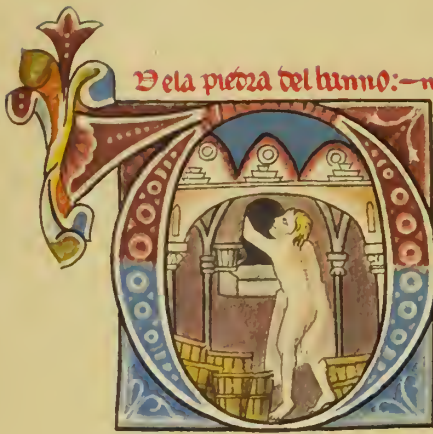 De la piedra del banno:—